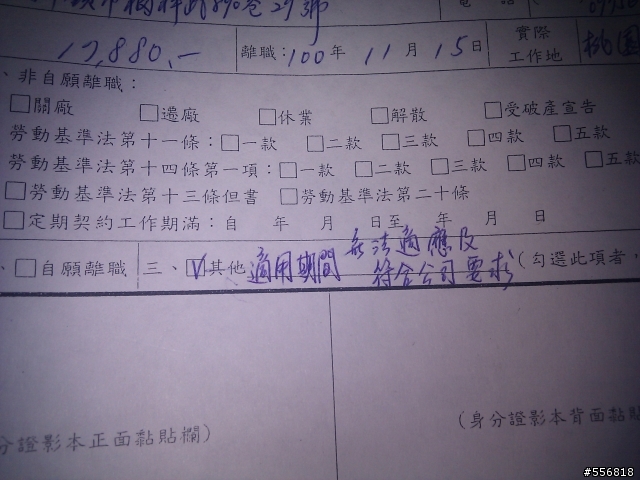 巷29號
17,880.- 離職:100年11月15日 實際工作地 桃園
、非自願離職:
□關廠 □遷廠 □休業 □解散 □受破產宣告
勞動基準法第十一條:□一款 □二款 □三款 □四款 □五款
勞動基準法第十四條第一項:□一款 □二款 □三款 □四款 □五款
□勞動基準法第十三條但書 □勞動基準法第二十條
□定期契約工作期滿:自 年 月 日至 年 月 日
、□自願離職 三、☑其他 適用期間 無法適應及符合公司要求 (勾選此項者,
分證影本正面黏貼欄)
(身分證影本背面黏貼
#556818